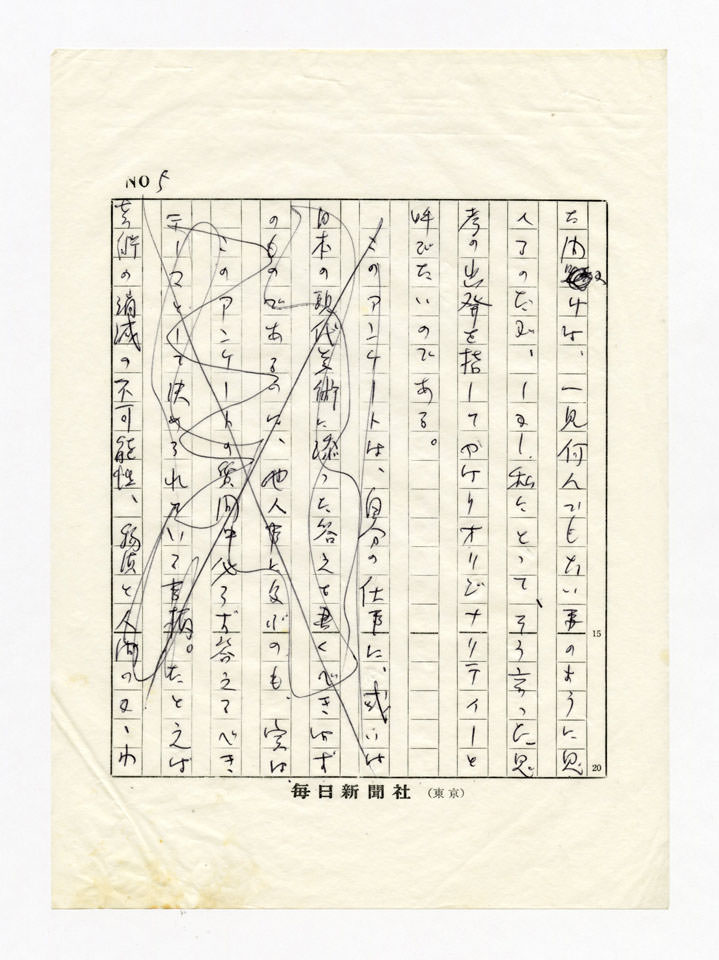 NO 5
た内けは、一見何んでもない事のように思
えるのだが、しかし、私にとって、そう言った思
考の出発を指してやはりオリジナリティーと
呼びたいのである。
このアンケートは、自分の仕事に、或いは
日本の現代美術に添った答えを書くべきはず
のものであるのに、他人事に及ぶのも、実は
このアンケートの質問中必らず答えるべき
テーマとして決められていて
。たとえば
芸術の消滅の不可能性、物質と人間のかかわ
15
20
毎日新聞社 (東京)